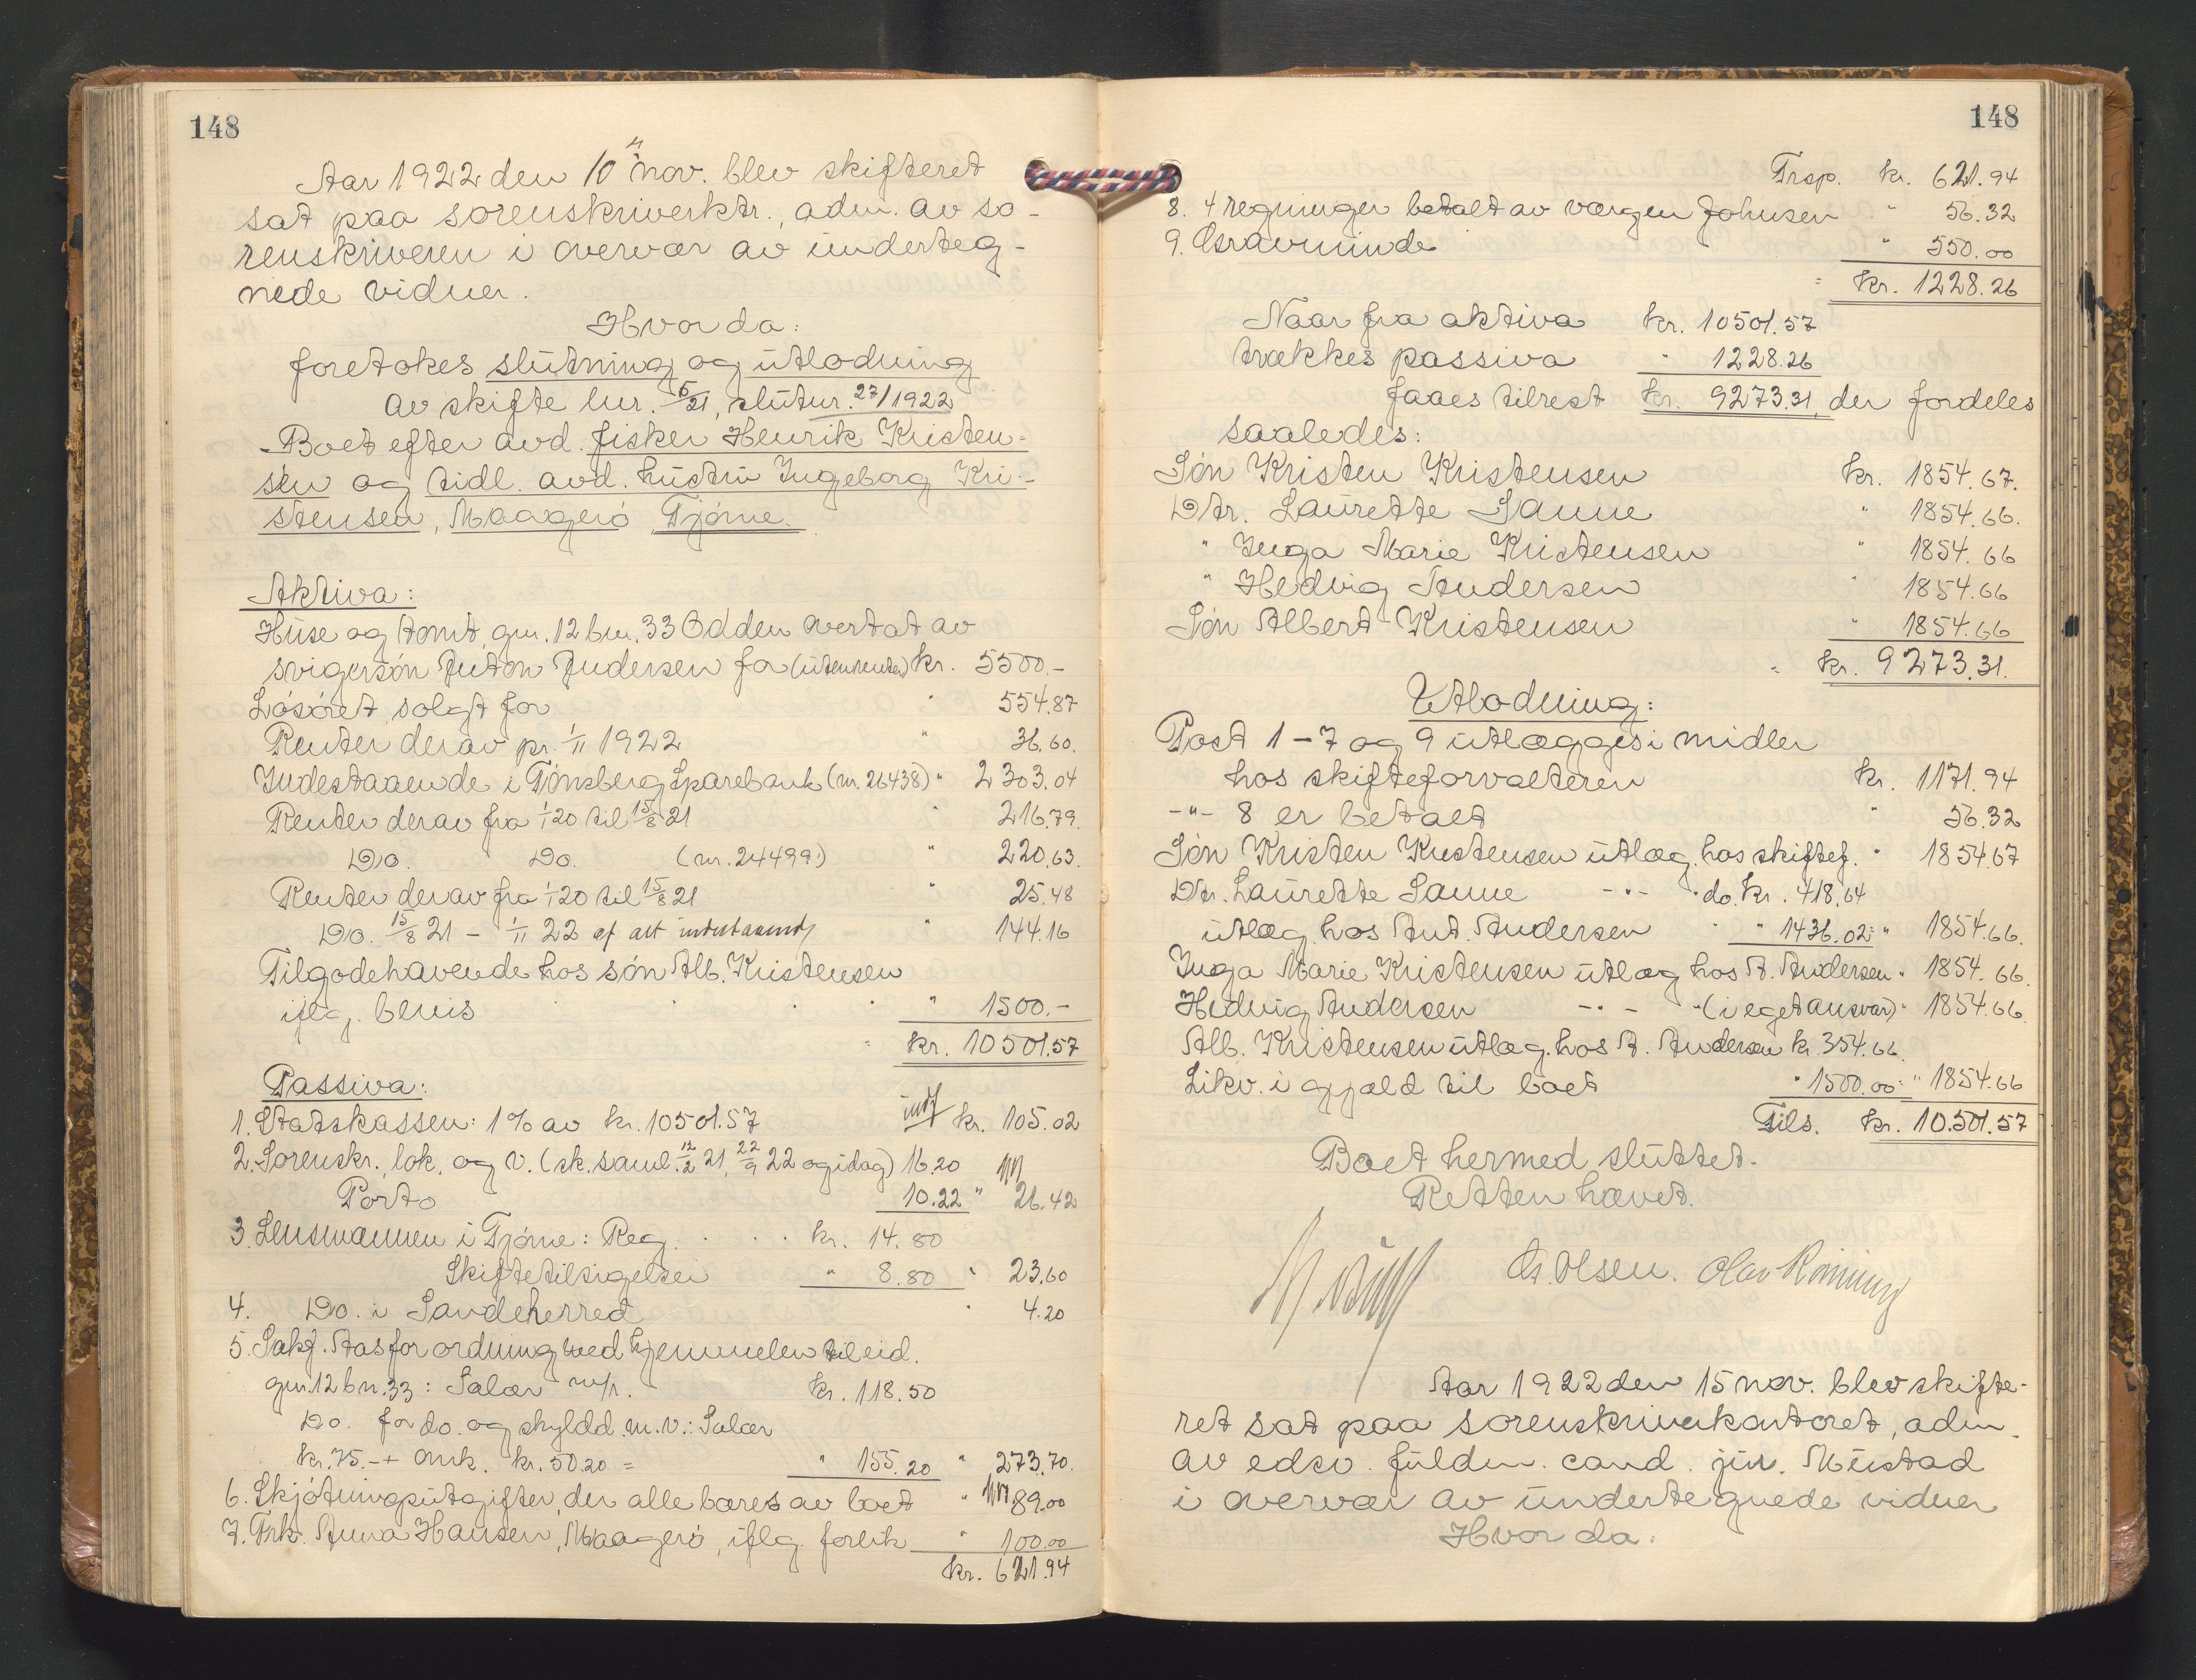 148
Aar 1922 den 10 nov. blev skifteret
sat paa sorenskriverktr., adm. av so-
renskriveren i overvær av underteg-
nede vidner.
Hvorda:
foretokes slutning og utlodning
av skifte lnr. 5/21, slutnr. 27/1922
Boet efter avd. fisker Henrik Kristen-
sen og tidl. avd. hustru Ingeborg Kri-
stensen, Maagerø Tjøme.
Aktiva:
Huse og tomt, gnr. 12 bnr. 33 Odden overtat av
svigersøn Anton Andersen for (uten renter) kr. 5500.-
Løsøret solgt for " 554.87
Renter derav pr. 1/11 1922 " 36.60.
Indestaaende i Tønsberg Sparebank (nr. 26438) " 2303.04
Renter derav fra 1/1 20 til 15/8 21 " 216.79.
Do. Do. (nr. 24499.) " 220.63.
Renter derav fra 1/1 20 til 15/8 21 " 25.48
Do. 15/8 21 - 1/11 22 af alt indestaaende " 144.16
Tilgodehavende hos søn Alb. Kristensen
iflg. bevis " 1500.-
= kr. 10501.57
Passiva:
1. Statskassen: 1% av kr. 10501.57 kr. 105.02
2. Sorenskr., lok. og v. (sk. saml. 12/2 21, 22/9 22 og idag) 16.20
Porto 10.22 " 26.42
3. Lensmannen i Tjøme: Reg. kr. 14.80
Skiftetilsigelser " 8.80 " 23.60
4. Do. i Sandeherred " 4.20
5. Sakf. Aas for ordning med hjemmelen til eid.
gnr. 12 bnr. 33: Salær kr. 118.50
Do. for do. og skyldd. m.v.: Salær
kr. 75.- + omk. kr. 50.20 = " 155.20 " 273.70.
6. Skjøtningsutgifter, der alle bæres av boet " 89.00
7. Frk. Anna Hansen, Maagerø, iflg. forlik " 100.00
kr. 621.94
148
Trsp. kr. 621.94
8. 4 regninger betalt av værgen Johnsen " 56.32
9. Gravminde " 550.00
= kr. 1228.26
Naar fra aktiva kr. 10501.57
trækkes passiva " 1228.26
faaes tilrest kr. 9273.31, der fordeles
saaledes:
Søn Kristen Kristensen kr. 1854.67.
Dtr. Laurette Sanne " 1854.66.
" Inga Marie Kristensen " 1854.66
" Hedvig Andersen " 1854.66
Søn Albert Kristensen " 1854.66
= kr. 9273.31.
Utlodning:
Post 1-7 og 9 utlægges i midler
hos skifteforvalteren kr. 1171.94
-"- 8 er betalt " 56.32
Søn Kristen Kristensen utlæg hos skiftef. " 1854.67
Dtr. Laurette Sanne -"- do. kr. 418.64
utlæg hos Ant. Andersen " 1436.02 = " 1854.66.
Inga Marie Kristensen utlæg hos A. Andersen " 1854.66.
Hedvig Andersen -"- " (i eget ansvar) " 1854.66.
Alb. Kristensen utlæg hos A. Andersen kr. 354.66.
Likv. i gjæld til boet " 1500.00 = " 1854.66
Tils. kr. 10.501.57
Boet hermed sluttet.
Retten hævet.
G. Olsen. Olav Rønning
Aar 1922 den 15 nov. blev skifte-
ret sat paa sorenskriverkontoret, adm.
av edsv. fuldm. cand. jur. Mustad
i overvær av undertegnede vidner
Hvorda: